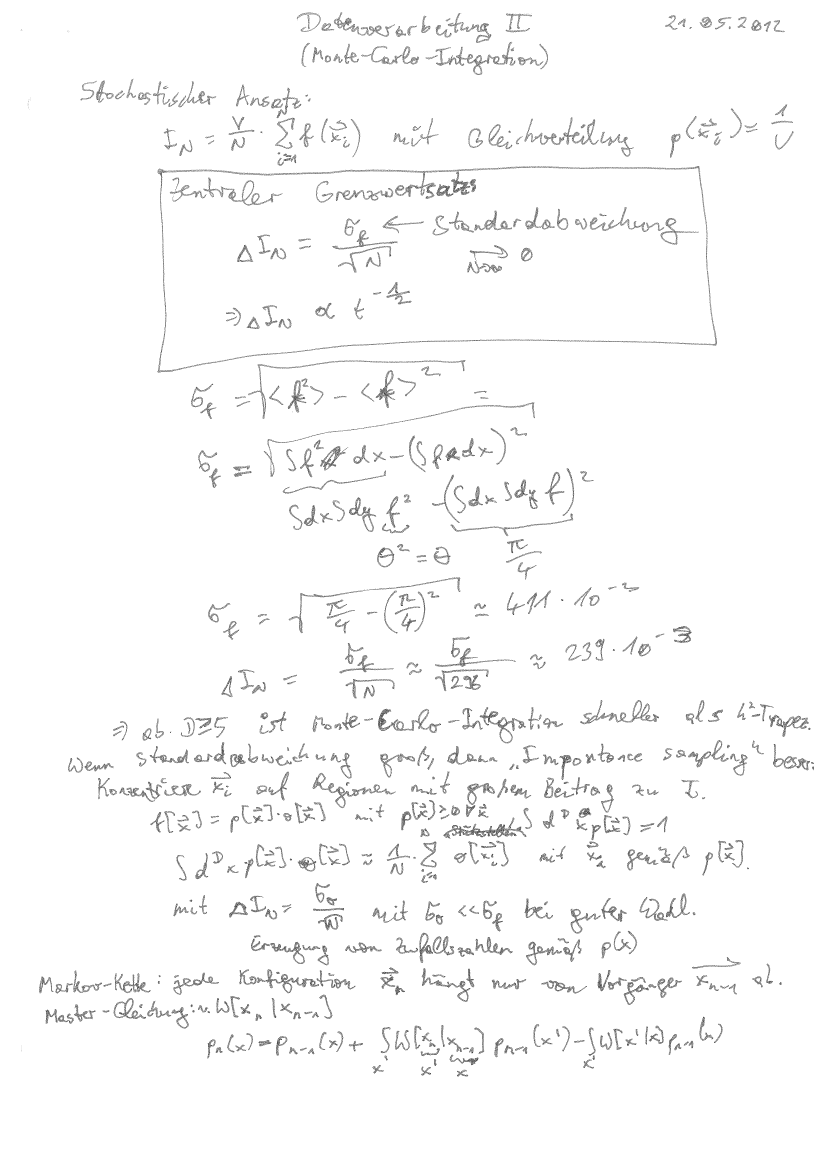 Datenverarbeitung II 21.05.2012
(Monte-Carlo-Integration)
Stochastischer Ansatz:
I_N = V/N · Σ_{i=1}^{N} f(x⃗_i) mit Gleichverteilung p(x⃗_i) = 1/V
Zentraler Grenzwertsatz:
ΔI_N = σ_f/√N ← Standardabweichung →_{N→∞} 0
⇒ ΔI_N ∝ t^{-1/2}
σ_f = √(<f²> - <f>²) =
σ_f = √(∫f² dx - (∫f dx)²)
∫dx∫dy f² - (∫dx∫dy f)²
Θ² = Θ π/4
σ_f = √(π/4 - (π/4)²) ≃ 411·10^{-3}
ΔI_N = σ_f/√N ≈ σ_f/√296 ≈ 239·10^{-3}
⇒ ab D≥5 ist Monte-Carlo-Integration schneller als h²-Trapez.
Wenn Standardabweichung groß, dann „Importance sampling" besser:
Konzentriere x⃗_i auf Regionen mit großem Beitrag zu I.
f[x⃗] = p[x⃗]·o[x⃗] mit p[x⃗] ≥ 0 ∀x⃗ ∫d^D x p[x⃗] = 1
∫d^D x p[x⃗]·o[x⃗] ≈ 1/N · Σ_{i=1}^{N} o[x⃗_i] mit x⃗_i gemäß p[x⃗].
mit ΔI_N = σ_o/√N mit σ_o << σ_f bei guter Wahl.
Erzeugung von Zufallszahlen gemäß p(x)
Markov-Kette: jede Konfiguration x⃗_n hängt nur von Vorgänger x⃗_{n-1} ab.
Master-Gleichung: W[x_n|x_{n-1}]
p_n(x) = p_{n-1}(x) + ∫_{x'} W[x_n|x_{n-1}] p_{n-1}(x') - ∫_{x'} W[x'|x] p_{n-1}(x)
x' x